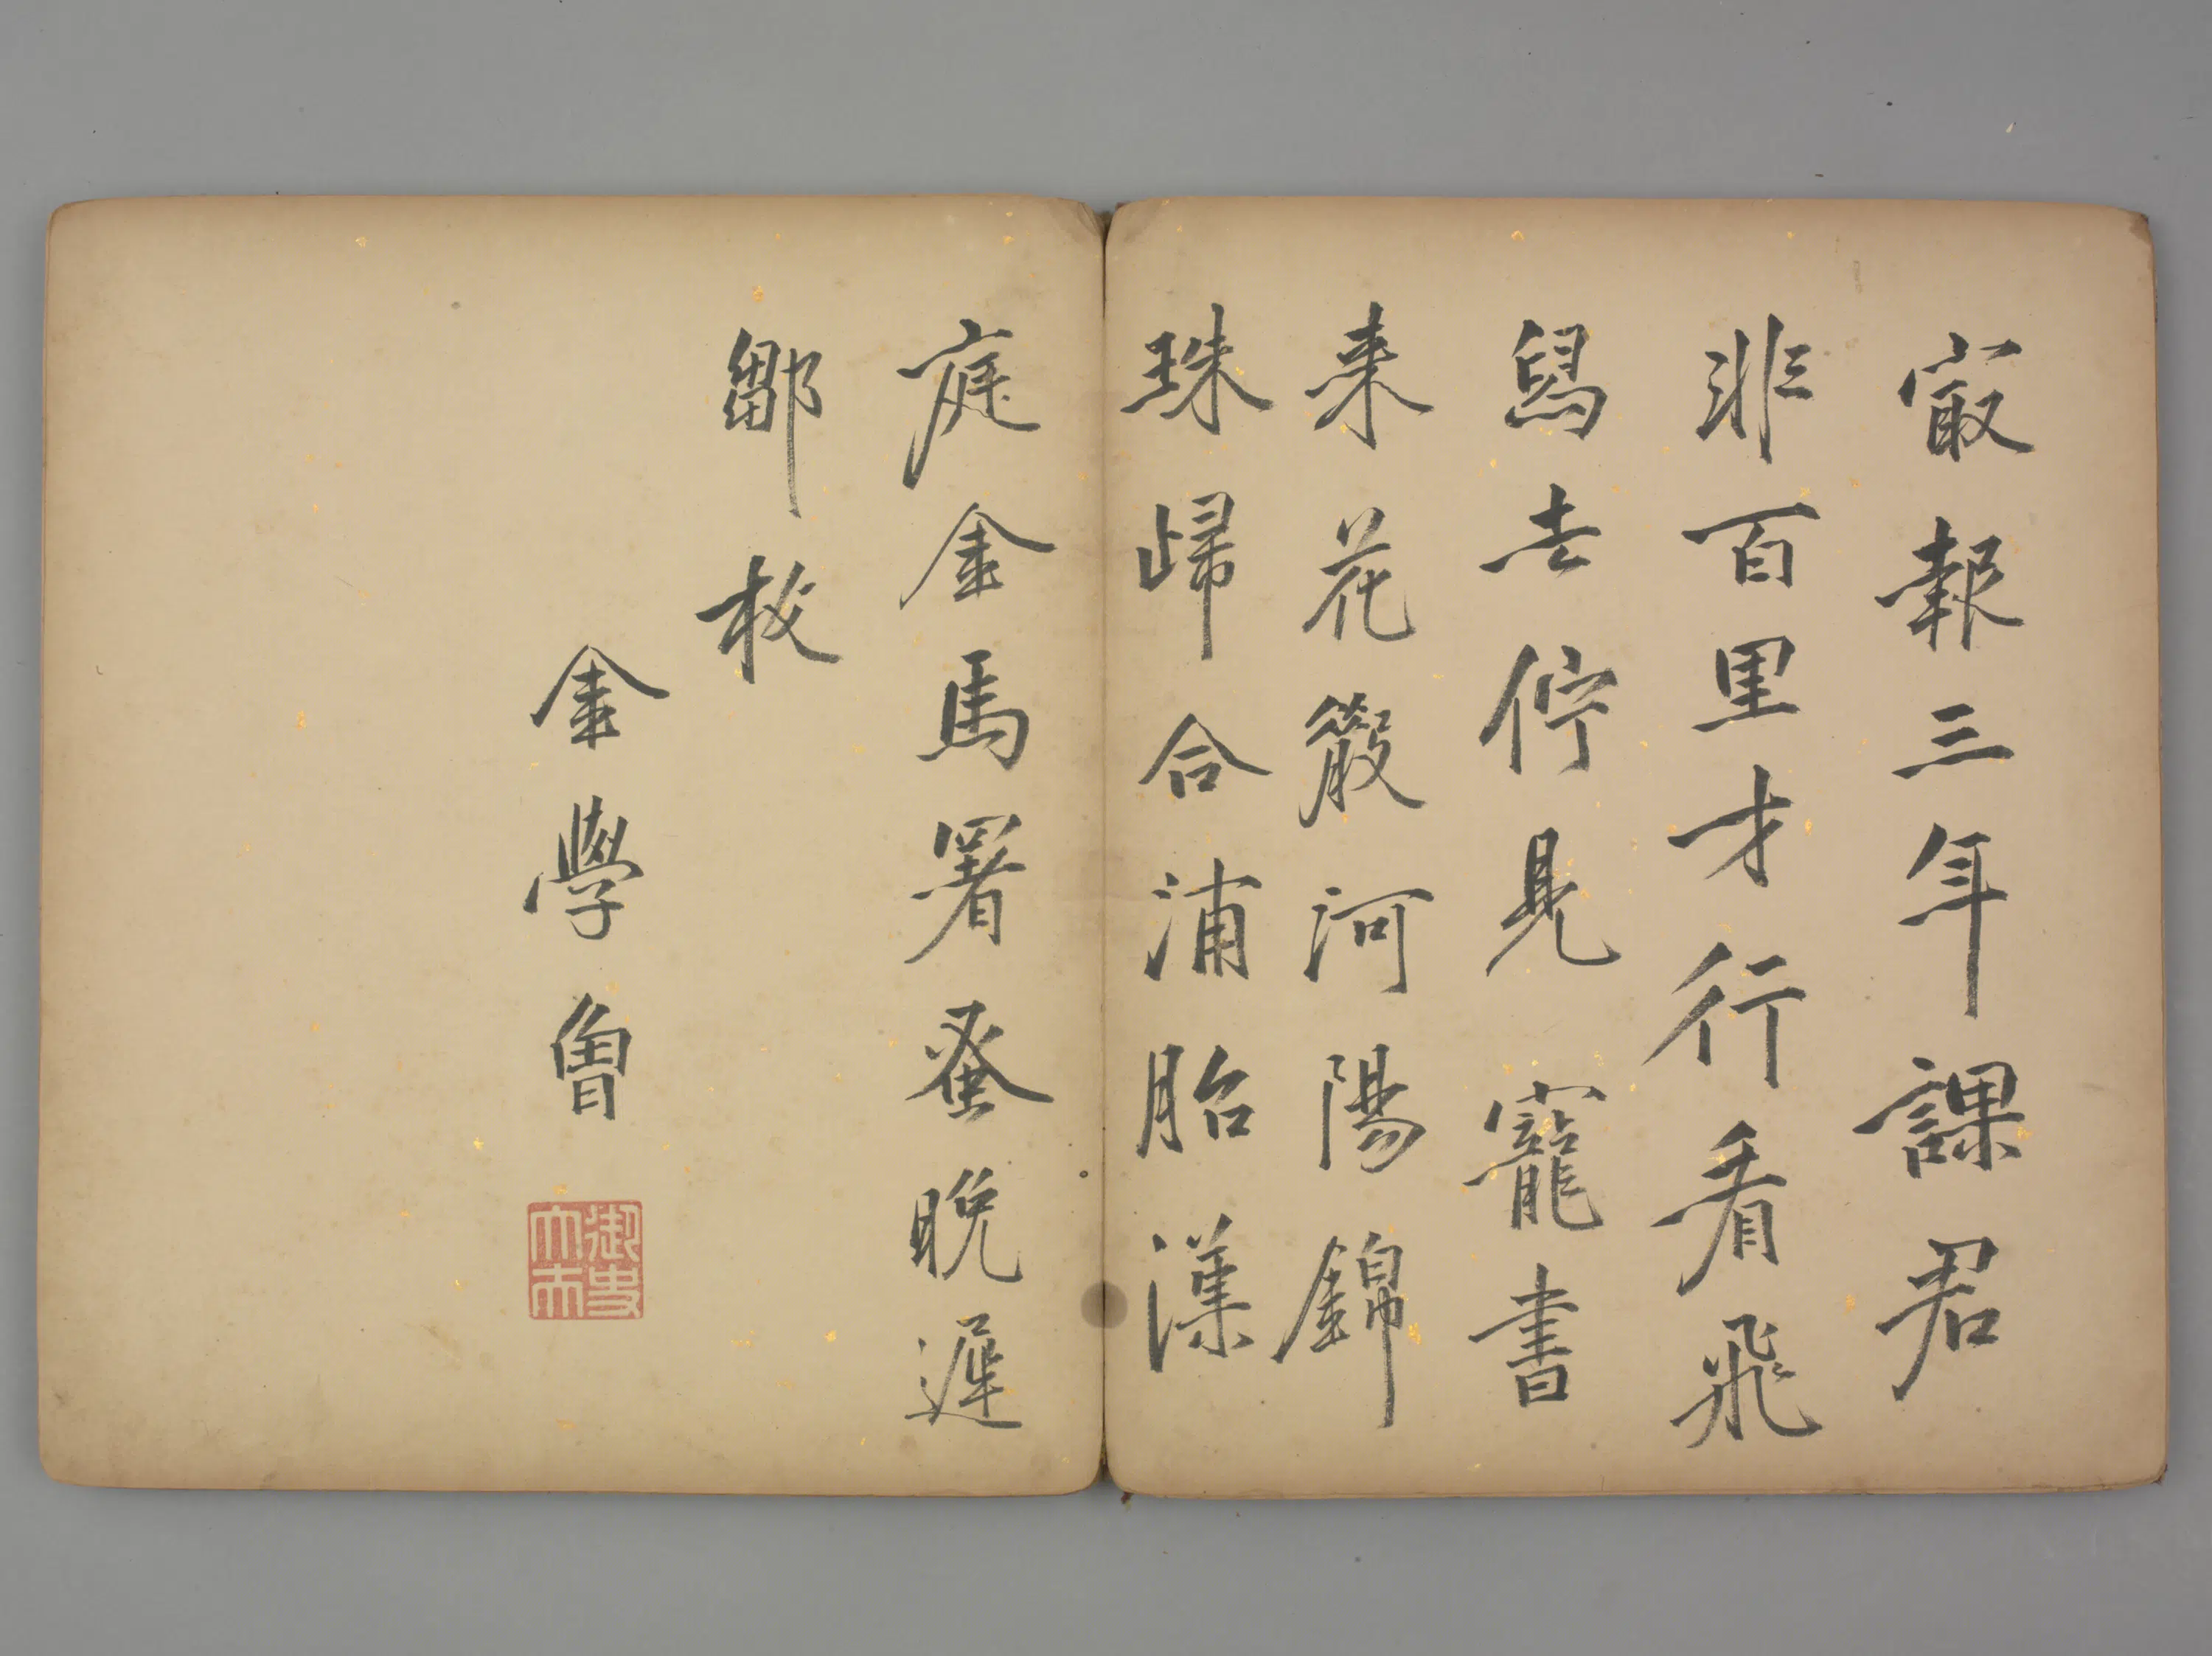 㝡報三年課君
非百里才行看飛
舄去佇見寵書
来花發河陽錦
珠歸合浦胎漢
庭金馬署蚤晚遲
鄒枚
金學曾
御史大夫